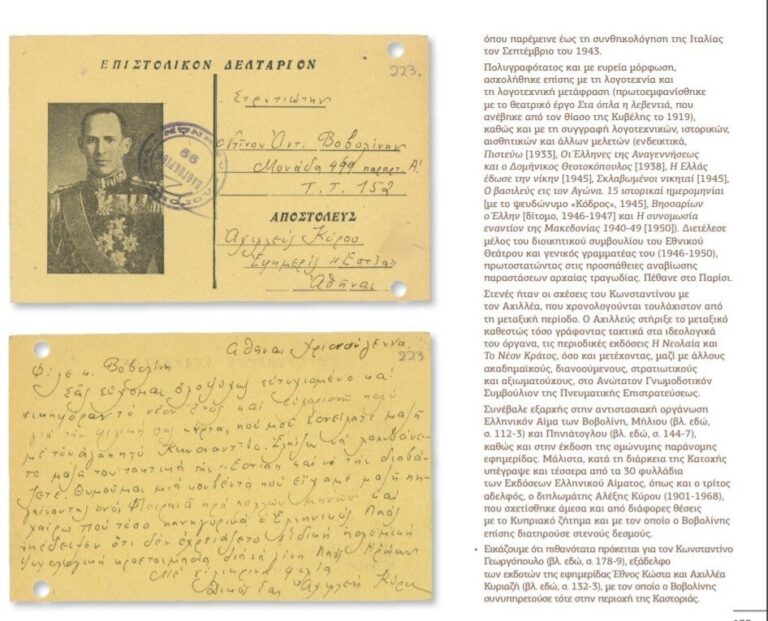 ΕΠΙΣΤΟΛΙΚΟΝ ΔΕΛΤΑΡΙΟΝ
223.
Στρατιώτην
Ντίνον Αντ. Βοβολίνην
Μονάδα 499 παραρτ. Α'
Τ.Τ. 152
ΑΠΟΣΤΟΛΕΥΣ
Αχιλλεύς Κύρου
Εφημερίς "Εστία"
Αθήναι
99
Αθήναι Χριστούγεννα
223
Φίλε κ. Βοβολίνη
Σας εύχομαι ολοψύχως ευτυχισμένο και
νικηφόρον το νέον έτος και ευχαριστώ πολύ
για την φιλική σας κάρτα, που μου εστείλατε μαζί
με τον αγαπητό Κωνσταντίνο. Ελπίζω να λαμβάνε-
τε μαζί του τακτικά την "Εστία" και να την διαβά-
ζετε. Θυμούμαι μιά κουβέντα που είχαμε μαζί πη-
γαίνοντας στον Πειραιά προ πολλών μηνών και
χαίρω που τόσο πανηγυρικά ο Ελληνικός Λαός
απέδειξεν ότι δεν εχρειάζετο ειδική πολεμική
ψυχολογική προετοιμασία διά να γίνη Λαός Ηρώων
Με ειλικρινή φιλία
δικός σας Αχιλλεύς Κύρου
όπου παρέμεινε έως τη συνθηκολόγηση της Ιταλίας
τον Σεπτέμβριο του 1943.
Πολυγραφότατος και με ευρεία μόρφωση,
ασχολήθηκε επίσης με τη λογοτεχνία και
τη λογοτεχνική μετάφραση (πρωτοεμφανίσθηκε
με το θεατρικό έργο Στα όπλα η λεβεντιά, που
ανέβηκε από τον θίασο της Κυβέλης το 1919),
καθώς και με τη συγγραφή λογοτεχνικών, ιστορικών,
αισθητικών και άλλων μελετών (ενδεικτικά,
Πιστεύω [1933], Οι Έλληνες της Αναγεννήσεως
και ο Δομήνικος Θεοτοκόπουλος [1938], Η Ελλάς
έδωσε την νίκην [1945], Σκλαβωμένοι νικηταί [1945],
Ο βασιλεύς εις τον Αγώνα. 15 ιστορικαί ημερομηνίαι
[με το ψευδώνυμο «Κόδρος», 1945], Βησσαρίων
ο Έλλην [δίτομο, 1946-1947] και Η συνομωσία
εναντίον της Μακεδονίας 1940-49 [1950]). Διετέλεσε
μέλος του διοικητικού συμβουλίου του Εθνικού
Θεάτρου και γενικός γραμματέας του (1946-1950),
πρωτοστατώντας στις προσπάθειες αναβίωσης
παραστάσεων αρχαίας τραγωδίας. Πέθανε στο Παρίσι.
Στενές ήταν οι σχέσεις του Κωνσταντίνου με
τον Αχιλλέα, που χρονολογούνται τουλάχιστον από
τη μεταξική περίοδο. Ο Αχιλλεύς στήριξε το μεταξικό
καθεστώς τόσο γράφοντας τακτικά στα ιδεολογικά
του όργανα, τις περιοδικές εκδόσεις Η Νεολαία και
Το Νέον Κράτος, όσο και μετέχοντας, μαζί με άλλους
ακαδημαϊκούς, διανοούμενους, στρατιωτικούς
και αξιωματούχους, στο Ανώτατον Γνωμοδοτικόν
Συμβούλιον της Πνευματικής Επιστρατεύσεως.
Συνέβαλε εξαρχής στην αντιστασιακή οργάνωση
Ελληνικόν Αίμα των Βοβολίνη, Μήλιου (βλ. εδώ,
σ. 112-3) και Πηνιάτογλου (βλ. εδώ, σ. 144-7),
καθώς και στην έκδοση της ομώνυμης παράνομης
εφημερίδας. Μάλιστα, κατά τη διάρκεια της Κατοχής
υπέγραψε και τέσσερα από τα 30 φυλλάδια
των Εκδόσεων Ελληνικού Αίματος, όπως και ο τρίτος
αδελφός, ο διπλωμάτης Αλέξης Κύρου (1901-1968),
που σχετίσθηκε άμεσα και από διάφορες θέσεις
με το Κυπριακό ζήτημα και με τον οποίο ο Βοβολίνης
επίσης διατηρούσε στενούς δεσμούς.
• Εικάζουμε ότι πιθανότατα πρόκειται για τον Κωνσταντίνο
Γεωργόπουλο (βλ. εδώ, σ. 178-9), εξάδελφο
των εκδοτών της εφημερίδας Έθνος Κώστα και Αχιλλέα
Κυριαζή (βλ. εδώ, σ. 132-3), με τον οποίο ο Βοβολίνης
συνυπηρετούσε τότε στην περιοχή της Καστοριάς.